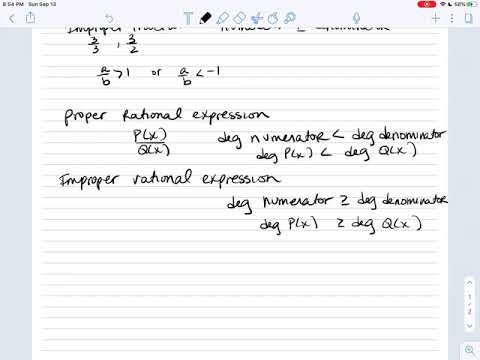 8:54 PM Sun Sep 13
56%
Improper
3/3 , 3/2
a/b > 1 or a/b < -1
Proper Rational expression
P(x)/Q(x) deg numerator < deg denominator
deg P(x) < deg Q(x)
Improper rational expression
deg numerator ≥ deg denominator
deg P(x) ≥ deg Q(x)
1
/
2